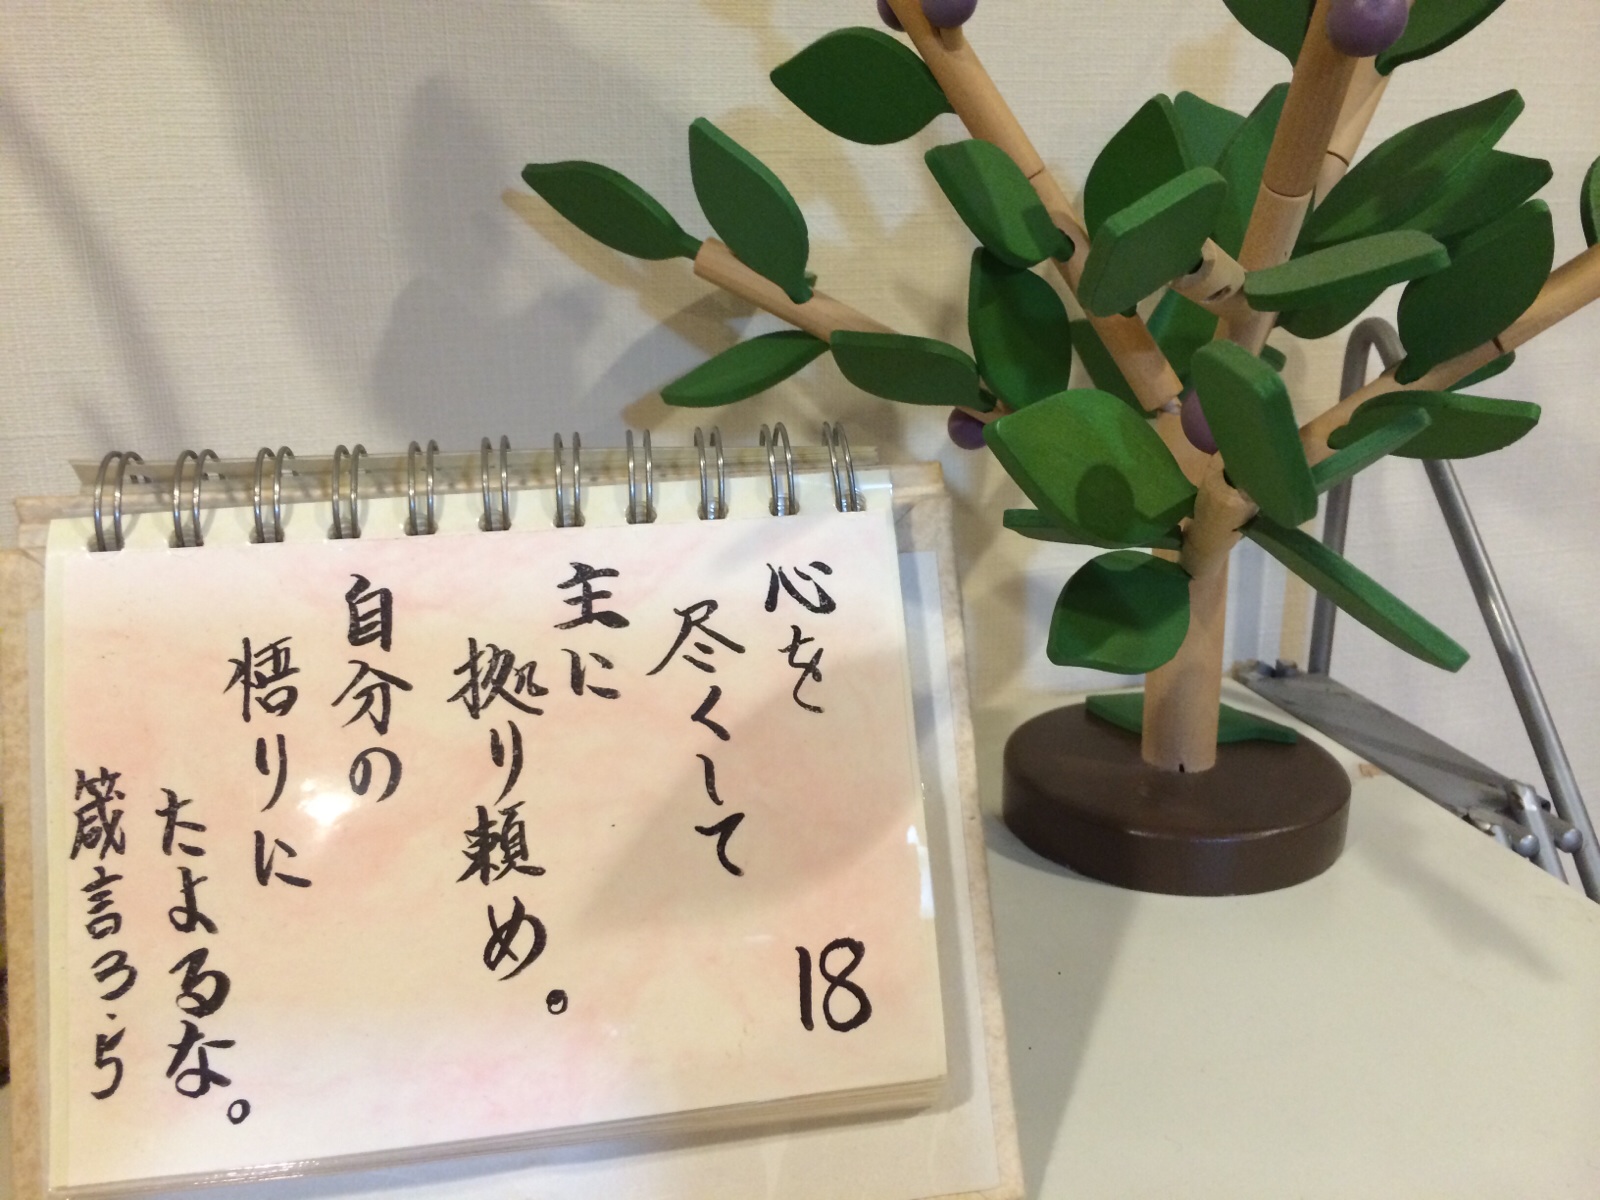 心を
尽くして
主に
拠り頼め。
自分の
悟りに
たよるな。
箴言3.5
18